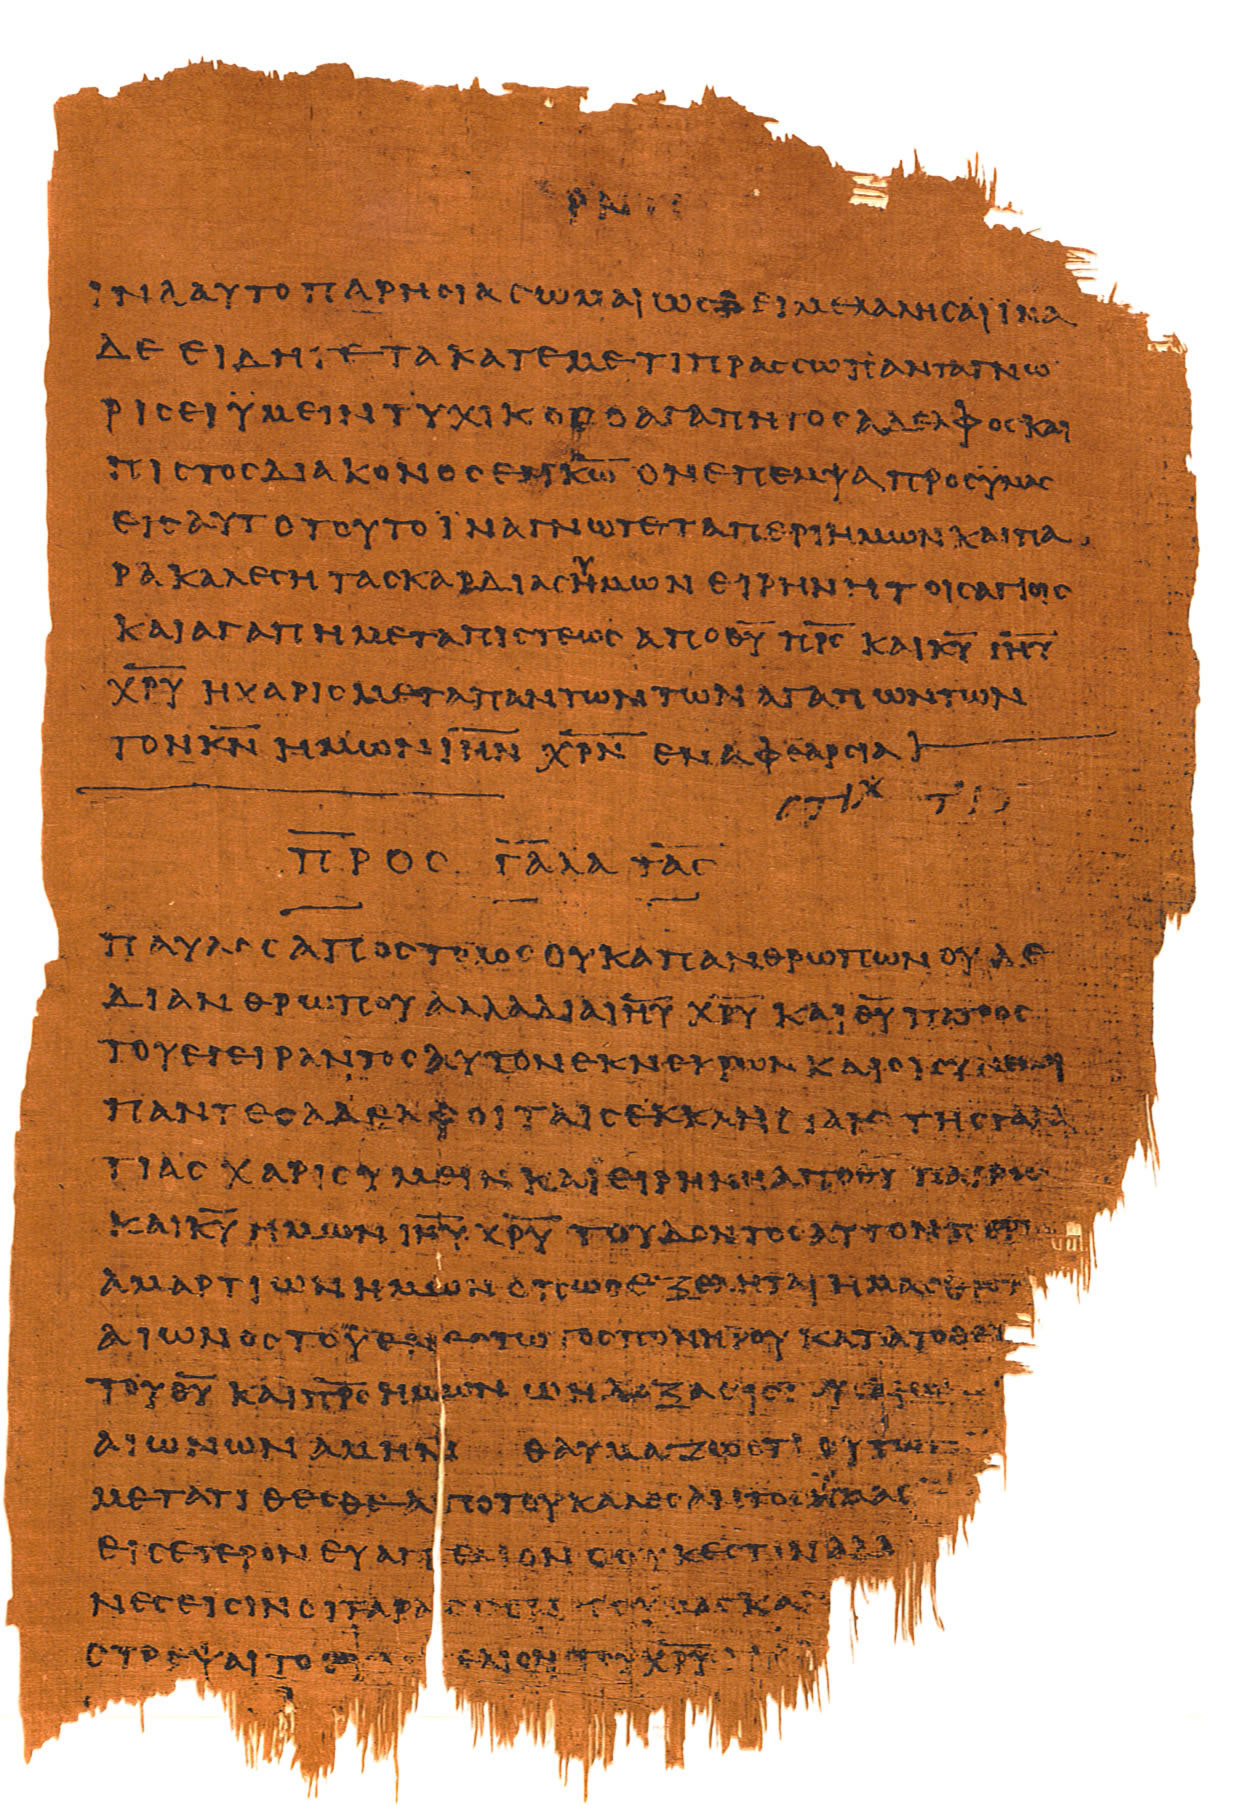 ΡΝ
ΙΝΑ ΑΥΤΟ ΠΑΡΗΣΙΑΣΩΜΑΙ ΩΣ ΔΕΙ ΜΕ ΛΑΛΗΣΑΙ ΙΝΑ
ΔΕ ΕΙΔΗΤΕ ΤΑ ΚΑΤ ΕΜΕ ΤΙ ΠΡΑΣΣΩ ΠΑΝΤΑ ΓΝΩ
ΡΙΣΕΙ ΥΜΕΙΝ ΤΥΧΙΚΟΣ Ο ΑΓΑΠΗΤΟΣ ΑΔΕΛΦΟΣ ΚΑΙ
ΠΙΣΤΟΣ ΔΙΑΚΟΝΟΣ ΕΝ Κ̅Ω̅ ΟΝ ΕΠΕΜΨΑ ΠΡΟΣ ΫΜΑΣ
ΕΙΣ ΑΥΤΟ ΤΟΥΤΟ ΪΝΑ ΓΝΩΤΕ ΤΑ ΠΕΡΙ ΗΜΩΝ ΚΑΙ ΠΑ
ΡΑΚΑΛΕΣΗ ΤΑΣ ΚΑΡΔΙΑΣ ΥΗΜΩΝ ΕΙΡΗΝΗ ΤΟΙΣ ΑΓΙΟΙΣ
ΚΑΙ ΑΓΑΠΗ ΜΕΤΑ ΠΙΣΤΕΩΣ ΑΠΟ Θ̅Υ̅ Π̅Ρ̅Σ̅ ΚΑΙ Κ̅Υ̅ Ι̅Η̅Υ̅
Χ̅Ρ̅Υ̅ Η ΧΑΡΙΣ ΜΕΤΑ ΠΑΝΤΩΝ ΤΩΝ ΑΓΑΠΩΝΤΩΝ
ΤΟΝ Κ̅Ν̅ ΗΜΩΝ Ι̅Η̅Ν̅ Χ̅Ρ̅Ν̅ ΕΝ ΑΦΘΑΡΣΙΑ
ΣΤΙΧ
ΠΡΟΣ ΓΑΛΑΤΑΣ
ΠΑΥΛΟΣ ΑΠΟΣΤΟΛΟΣ ΟΥΚ ΑΠ ΑΝΘΡΩΠΩΝ ΟΥΔΕ
ΔΙ ΑΝΘΡΩΠΟΥ ΑΛΛΑ ΔΙΑ Ι̅Η̅Υ̅ Χ̅Ρ̅Υ̅ ΚΑΙ Θ̅Υ̅ ΠΑΤΡΟΣ
ΤΟΥ ΕΓΕΙΡΑΝΤΟΣ ΑΥΤΟΝ ΕΚ ΝΕΚΡΩΝ ΚΑΙ ΟΙ ΣΥΝ ΕΜΟΙ
ΠΑΝΤΕΣ ΑΔΕΛΦΟΙ ΤΑΙΣ ΕΚΚΛΗΣΙΑΙΣ ΤΗΣ ΓΑΛΑ
ΤΙΑΣ ΧΑΡΙΣ ΥΜΕΙΝ ΚΑΙ ΕΙΡΗΝΗ ΑΠΟ Θ̅Υ̅ ΠΑΤΡΟΣ
ΚΑΙ Κ̅Υ̅ ΗΜΩΝ Ι̅Η̅Υ̅ Χ̅Ρ̅Υ̅ ΤΟΥ ΔΟΝΤΟΣ ΑΥΤΟΝ ΠΕΡΙ
ΑΜΑΡΤΙΩΝ ΗΜΩΝ ΟΠΩΣ ΕΞΕΛΗΤΑΙ ΗΜΑΣ ΕΚ ΤΟΥ
ΑΙΩΝΟΣ ΤΟΥ ΕΝΕΣΤΩΤΟΣ ΠΟΝΗΡΟΥ ΚΑΤΑ ΤΟ ΘΕΛ
ΤΟΥ Θ̅Υ̅ ΚΑΙ Π̅Ρ̅Σ̅ ΗΜΩΝ Ω Η ΔΟΞΑ ΕΙΣ
ΑΙΩΝΩΝ ΑΜΗΝ ΘΑΥΜΑΖΩ ΟΤΙ ΟΥΤΩΣ
ΜΕΤΑΤΙΘΕΣΘΕ ΑΠΟ ΤΟΥ ΚΑΛΕΣΑΝΤΟΣ ΥΜΑΣ
ΕΙΣ ΕΤΕΡΟΝ ΕΥΑΓΓΕΛΙΟΝ Ο ΟΥΚ ΕΣΤΙΝ ΑΛΛ
ΝΕΣ ΕΙΣΙΝ ΟΙ ΤΑΡΑΣ ΥΜΑΣ ΚΑΙ
ΣΤΡΕΨΑΙ ΤΟ ΕΛΙΟΝ ΤΟΥ Χ̅Ρ̅Υ̅